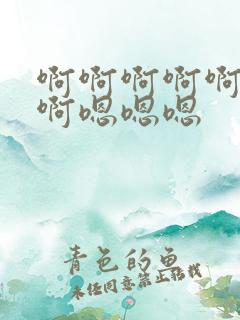 啊啊啊啊啊
啊嗯嗯嗯
青色的鱼
未经同意禁止转载